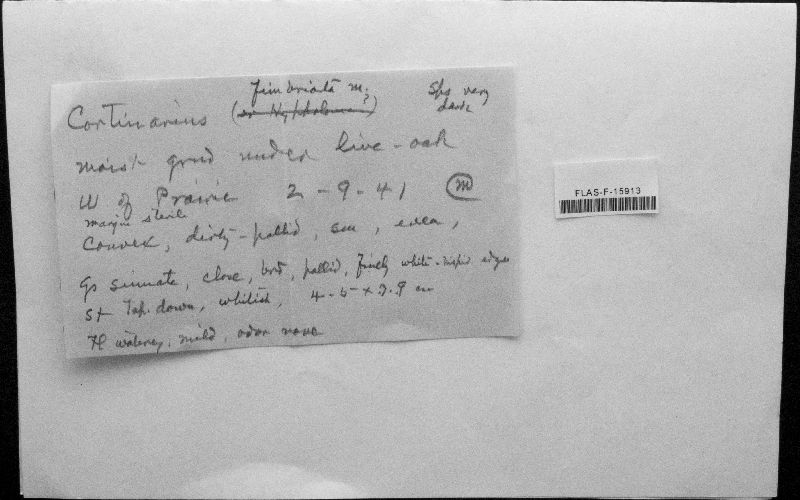 fimbriata m.
Cortinarius (or Hypholoma?)
Sps very
dark
moist grnd under live-oak
W of Prairie 2-9-41 M
margin sterile
Convex, dirty-pallid, sm, even,
Gs sinuate, close, brd, pallid, finely white- edges
St Tap. down, whitish, 4-5 x .7-.9 cm
Fl watery, mild, odor none
FLAS-F-15913